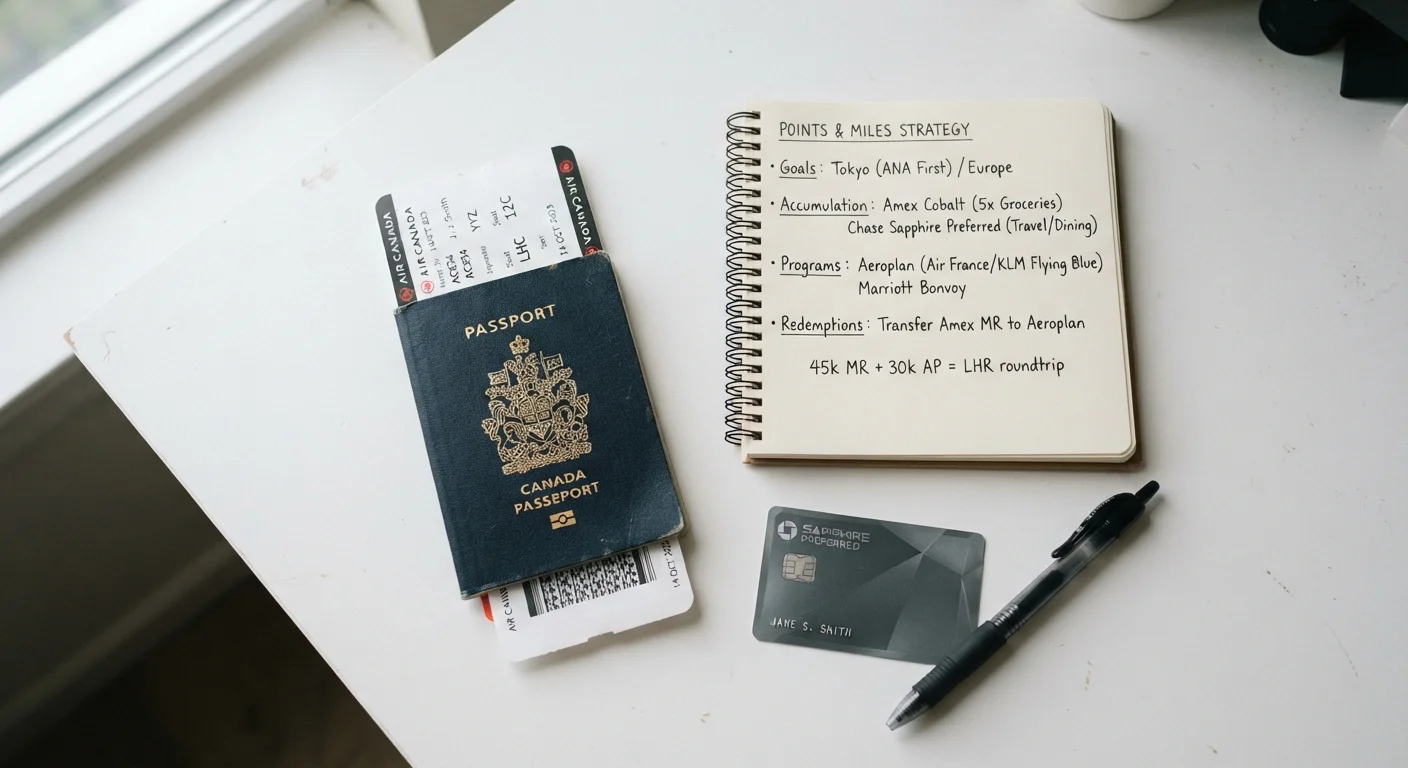 AIR CANADA
AIR CANADA
YYZ
12C
LHC
AIR CANADA
PASSPORT
CANADA
PASSEPORT
14 OCT
POINTS & MILES STRATEGY
• Goals : Tokyo (ANA First) / Europe
• Accumulation : Amex Cobalt (5x Groceries)
Chase Sapphire Preferred (Travel/Dining)
• Programs : Aeroplan (Air France/KLM Flying Blue)
Marriott Bonvoy
• Redemptions : Transfer Amex MR to Aeroplan
45k MR + 30k AP = LHR roundtrip